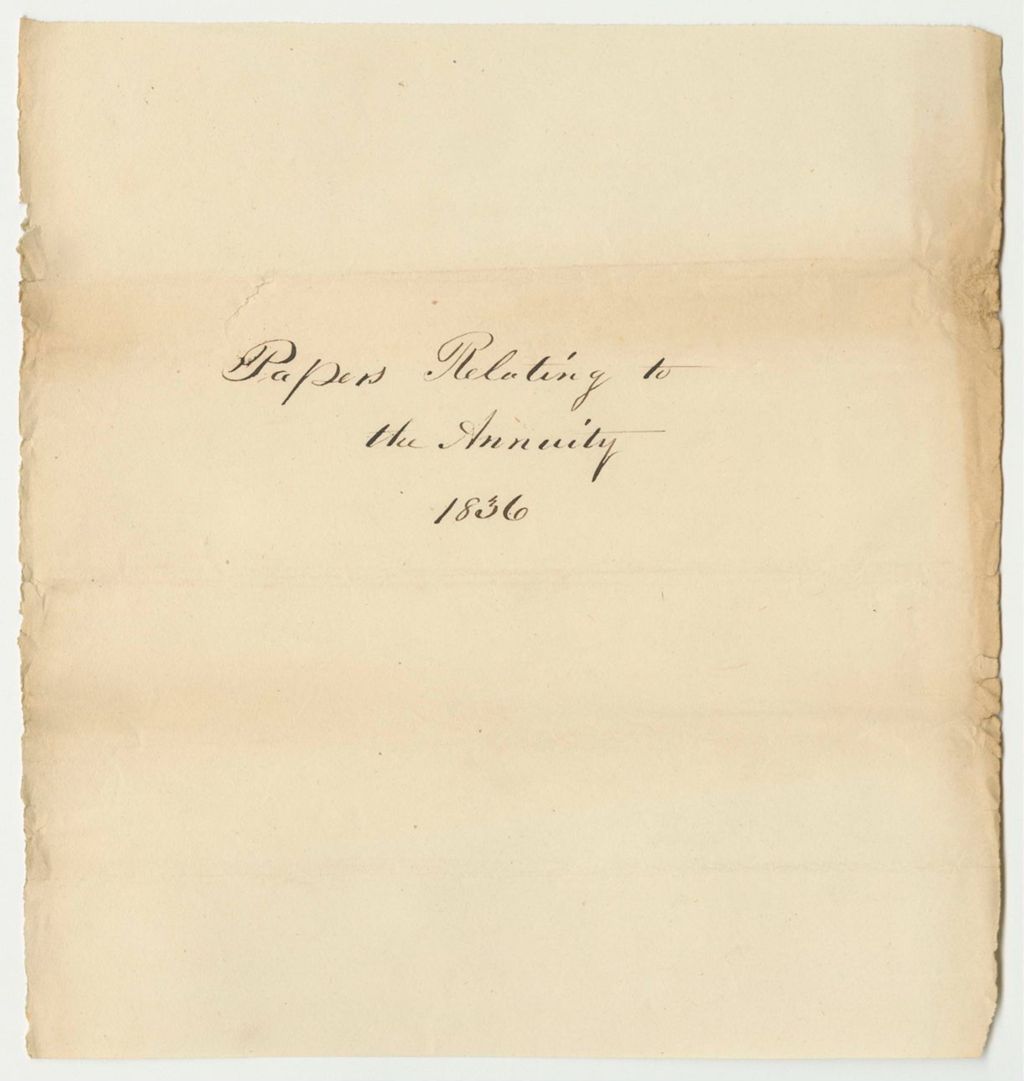 Papers Relating to
the Annuity
1836